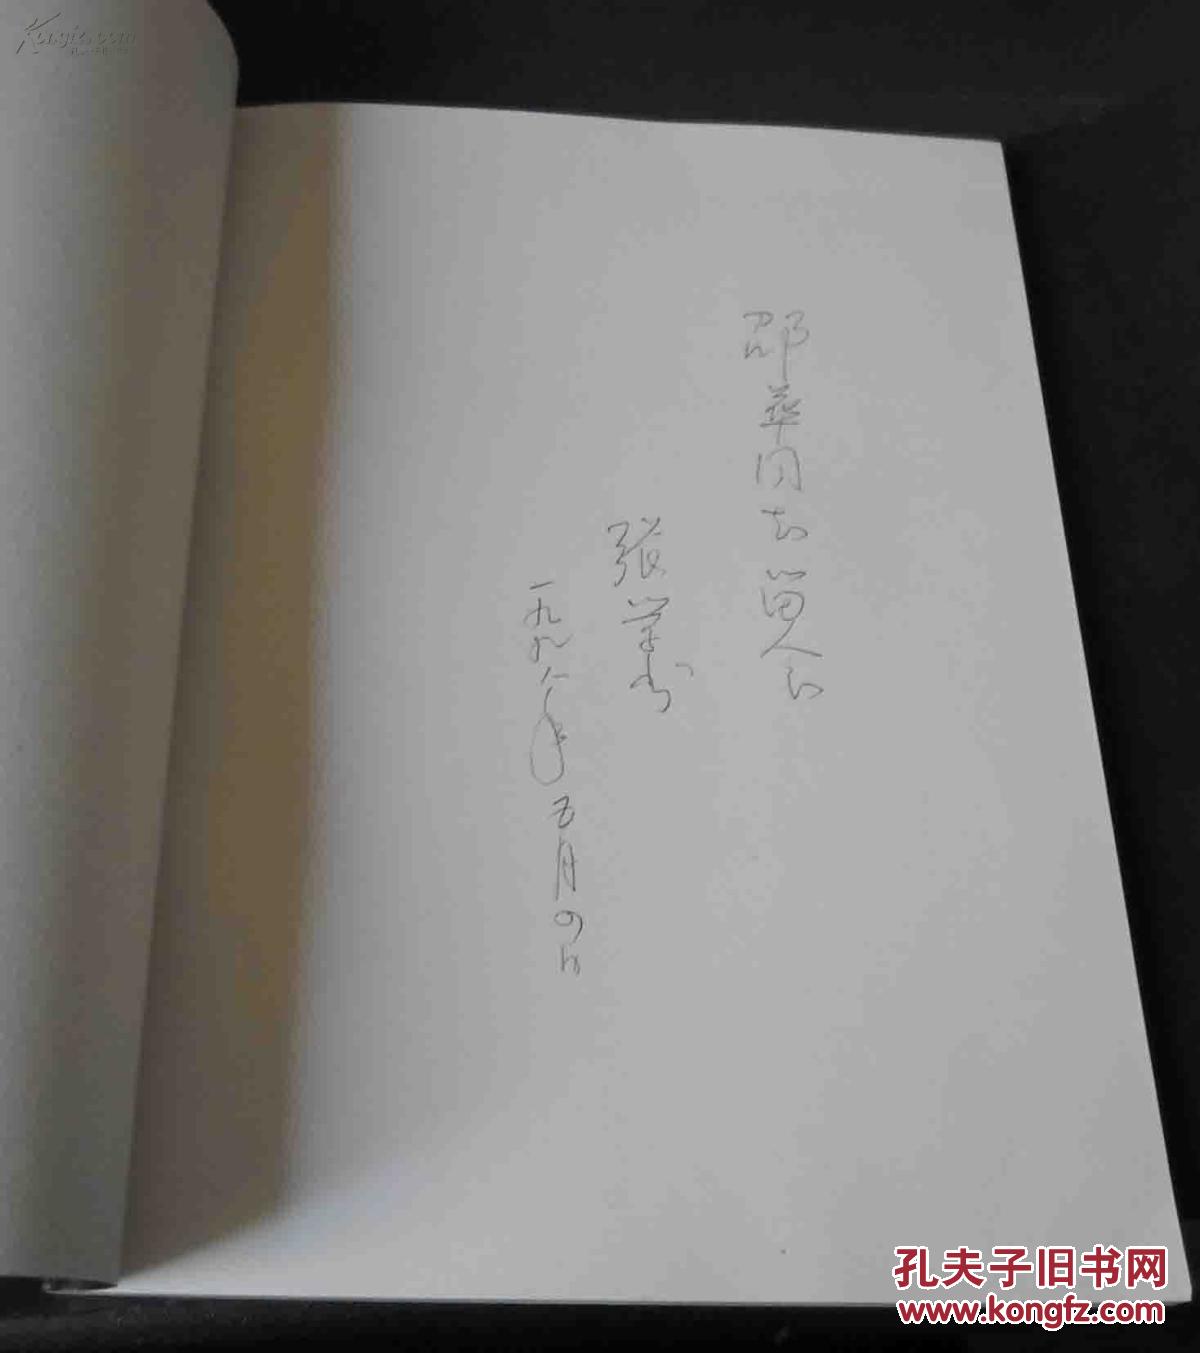 邵华同志留念
张学书
一九九八年五月四日
孔夫子旧书网
www.kongfz.com
Kongfz.com